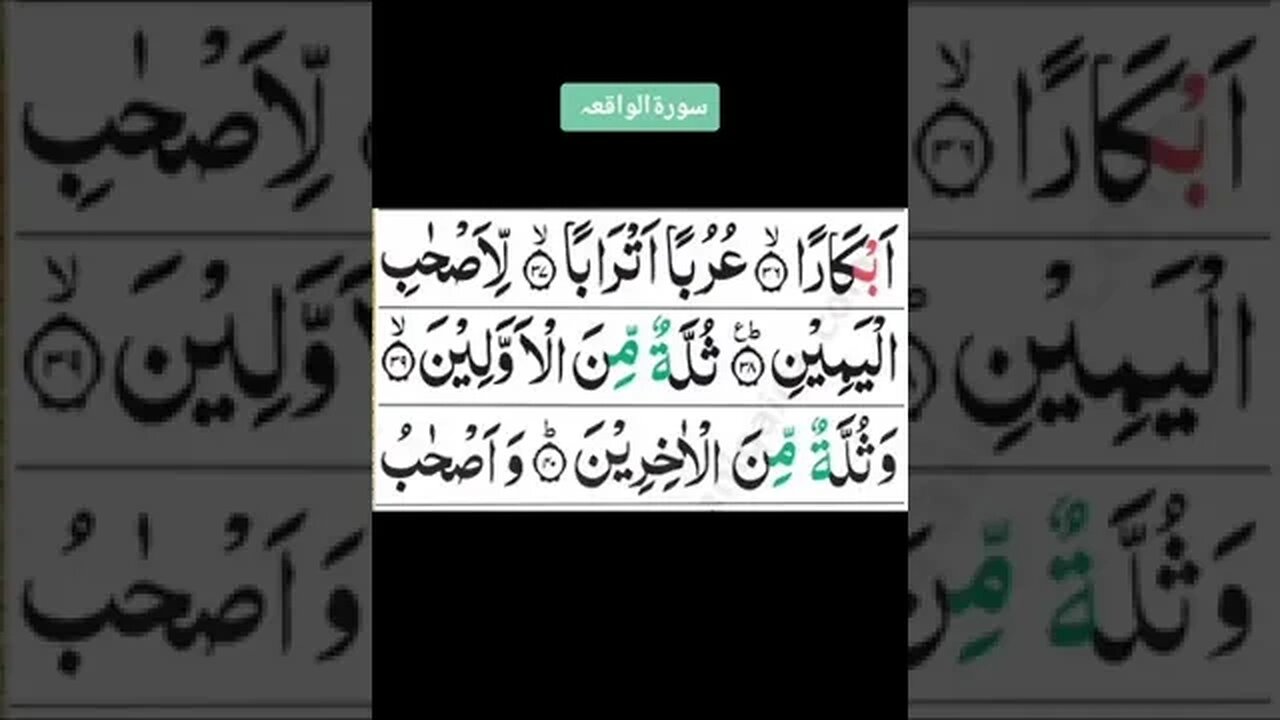 سورۃ الواقعہ
اَبْكَارًا ۙ﴿۳۶﴾ عُرُبًا اَتْرَابًا ۙ﴿۳۷﴾ لِّاَصْحٰبِ
الْيَمِيْنِ ؕع﴿۳۸﴾ ثُلَّةٌ مِّنَ الْاَوَّلِيْنَ ۙ﴿۳۹﴾
وَ ثُلَّةٌ مِّنَ الْاٰخِرِيْنَ ؕ﴿۴۰﴾ وَ اَصْحٰبُ